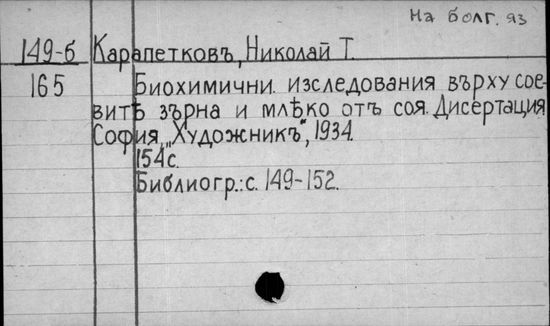 На болг. яз
149-б Карапетковъ, Николай Т.
165 Биохимични изследования върху сое-
витѣ зърна и млѣко отъ соя. Дисертация
София, „Художникъ", 1934.
154 с.
Библиогр.: с. 149-152.